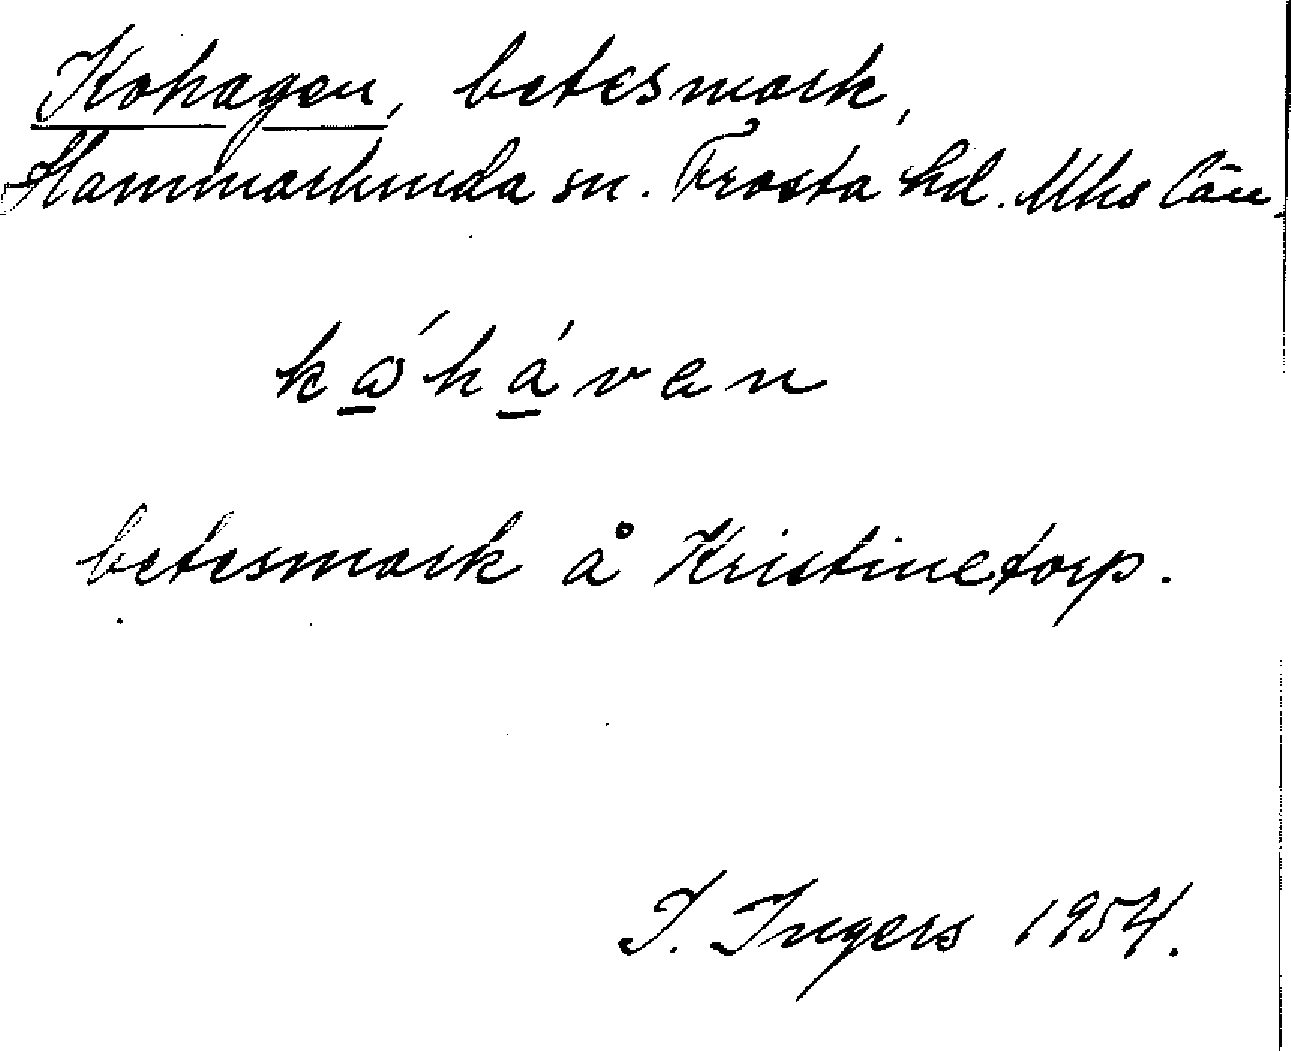 Kohagen, betesmark,
Hammarlunda sn. Frosta hd. Mhs län.
kǻ̱há̱ven
betesmark å Kristinetorp.
I. Ingers 1954.